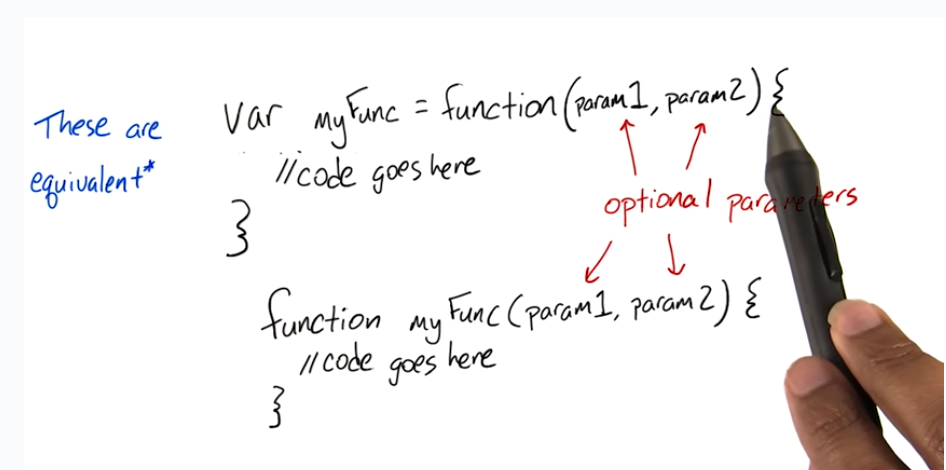 These are
equivalent*
var myFunc = function(param1, param2) {
//code goes here
}
optional parameters
function myFunc(param1, param2) {
//code goes here
}